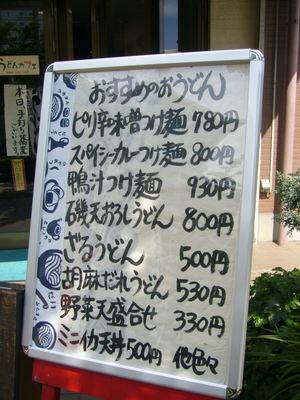 うどんカフェ
本日、手打ち蕎麦
ございます。
おすすめのおうどん
ピリ辛味噌つけ麺 780円
スパイシーカレーつけ麺 800円
鴨汁つけ麺 930円
磯天おろしうどん 800円
ざるうどん 500円
胡麻だれうどん 530円
野菜天盛合せ 330円
ミニイカ天丼 500円 他色々